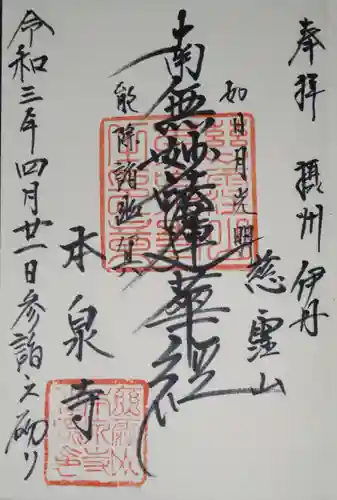 奉拝 摂州 伊丹
慈霊山
如日月光明
南無妙法蓮華経
能除諸幽冥
本泉寺
令和三年四月廿一日参詣之砌リ